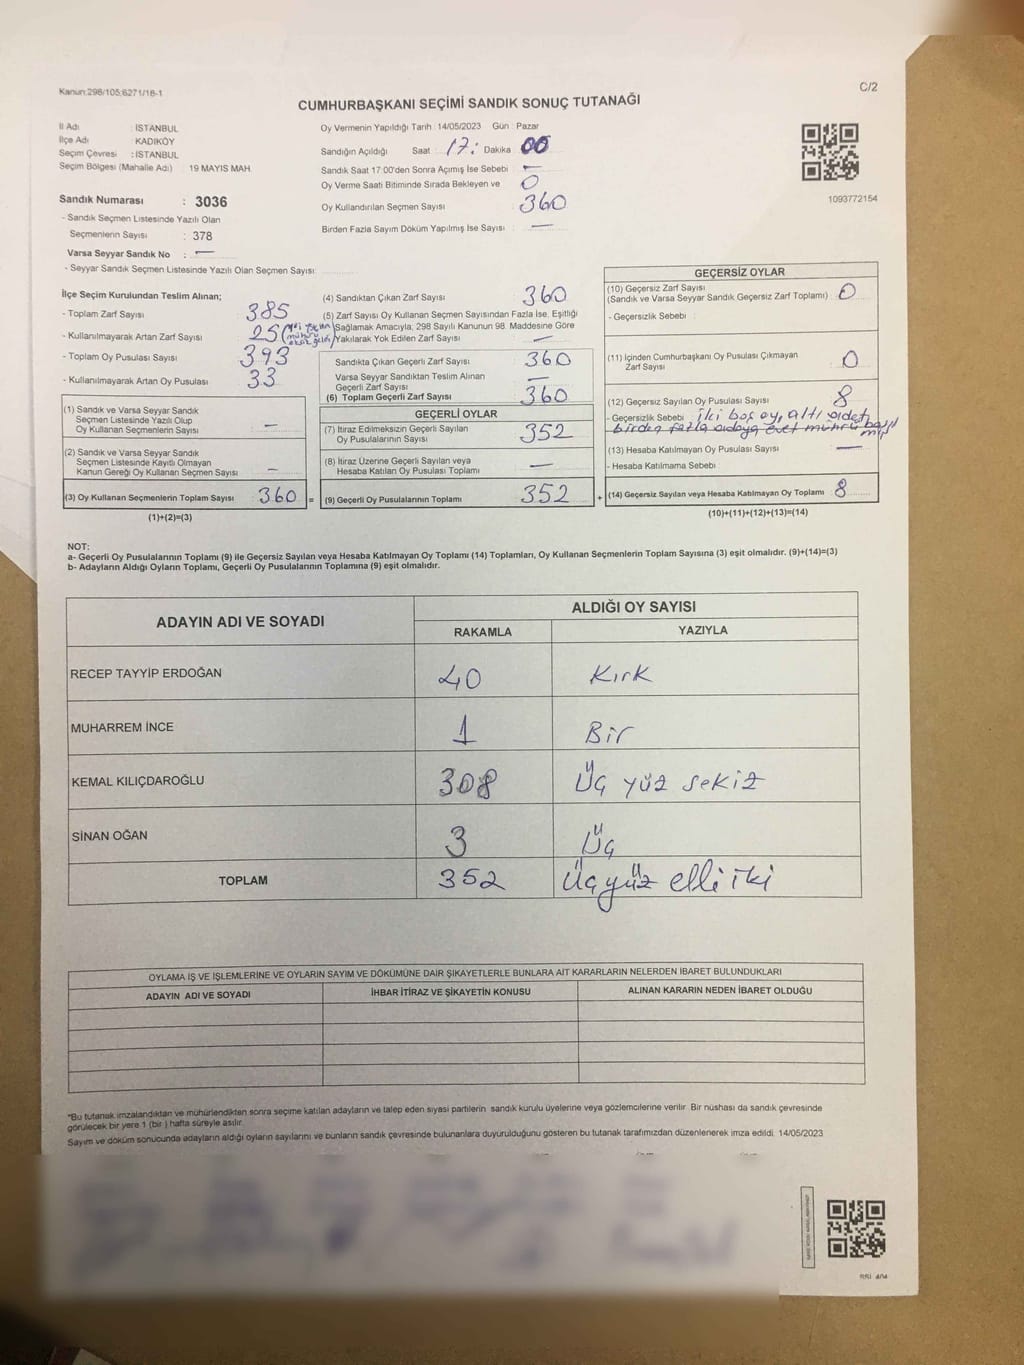 Kanun:298/105;6271/18-1
C/2
CUMHURBAŞKANI SEÇİMİ SANDIK SONUÇ TUTANAĞI
İl Adı : İSTANBUL
İlçe Adı : KADIKÖY
Seçim Çevresi : İSTANBUL
Seçim Bölgesi (Mahalle Adı) : 19 MAYIS MAH.
Sandık Numarası : 3036
- Sandık Seçmen Listesinde Yazılı Olan
Seçmenlerin Sayısı : 378
Varsa Seyyar Sandık No : —
- Seyyar Sandık Seçmen Listesinde Yazılı Olan Seçmen Sayısı:
Oy Vermenin Yapıldığı Tarih : 14/05/2023 Gün : Pazar
Sandığın Açıldığı Saat : 17: Dakika : 00
Sandık Saat 17:00'den Sonra Açımış İse Sebebi : —
Oy Verme Saati Bitiminde Sırada Bekleyen ve 0
Oy Kullandırılan Seçmen Sayısı : 360
Birden Fazla Sayım Döküm Yapılmış İse Sayısı : —
1093772154
İlçe Seçim Kurulundan Teslim Alınan;
- Toplam Zarf Sayısı : 385
- Kullanılmayarak Artan Zarf Sayısı : 25
- Toplam Oy Pusulası Sayısı : 393
- Kullanılmayarak Artan Oy Pusulası : 33
(1) Sandık ve Varsa Seyyar Sandık
Seçmen Listesinde Yazılı Olup
Oy Kullanan Seçmenlerin Sayısı —
(2) Sandık ve Varsa Seyyar Sandık
Seçmen Listesinde Kayıtlı Olmayan
Kanun Gereği Oy Kullanan Seçmen Sayısı —
(3) Oy Kullanan Seçmenlerin Toplam Sayısı 360 =
(1)+(2)=(3)
(4) Sandıktan Çıkan Zarf Sayısı : 360
(5) Zarf Sayısı Oy Kullanan Seçmen Sayısından Fazla İse, Eşitliği
Sağlamak Amacıyla, 298 Sayılı Kanunun 98. Maddesine Göre
Yakılarak Yok Edilen Zarf Sayısı : —
Sandıkta Çıkan Geçerli Zarf Sayısı : 360
Varsa Seyyar Sandıktan Teslim Alınan
Geçerli Zarf Sayısı —
(6) Toplam Geçerli Zarf Sayısı : 360
GEÇERLİ OYLAR
(7) İtiraz Edilmeksizin Geçerli Sayılan
Oy Pusulalarının Sayısı : 352
(8) İtiraz Üzerine Geçerli Sayılan veya
Hesaba Katılan Oy Pusulası Toplamı : —
(9) Geçerli Oy Pusulalarının Toplamı : 352 +
GEÇERSİZ OYLAR
(10) Geçersiz Zarf Sayısı
(Sandık ve Varsa Seyyar Sandık Geçersiz Zarf Toplamı) : 0
- Geçersizlik Sebebi :
(11) İçinden Cumhurbaşkanı Oy Pusulası Çıkmayan
Zarf Sayısı 0
(12) Geçersiz Sayılan Oy Pusulası Sayısı 8
- Geçersizlik Sebebi : iki boş oy, altı adet
birden fazla adaya evet mührü basıl
mış
(13) Hesaba Katılmayan Oy Pusulası Sayısı —
- Hesaba Katılmama Sebebi
(14) Geçersiz Sayılan veya Hesaba Katılmayan Oy Toplamı : 8
(10)+(11)+(12)+(13)=(14)
NOT:
a- Geçerli Oy Pusulalarının Toplamı (9) ile Geçersiz Sayılan veya Hesaba Katılmayan Oy Toplamı (14) Toplamları, Oy Kullanan Seçmenlerin Toplam Sayısına (3) eşit olmalıdır. (9)+(14)=(3)
b- Adayların Aldığı Oyların Toplamı, Geçerli Oy Pusulalarının Toplamına (9) eşit olmalıdır.
ADAYIN ADI VE SOYADI
ALDIĞI OY SAYISI
RAKAMLA YAZIYLA
RECEP TAYYİP ERDOĞAN 40 Kırk
MUHARREM İNCE 1 Bir
KEMAL KILIÇDAROĞLU 308 Üç yüz sekiz
SİNAN OĞAN 3 Üç
TOPLAM 352 Üç yüz elli iki
OYLAMA İŞ VE İŞLEMLERİNE VE OYLARIN SAYIM VE DÖKÜMÜNE DAİR ŞİKAYETLERLE BUNLARA AİT KARARLARIN NELERDEN İBARET BULUNDUKLARI
ADAYIN ADI VE SOYADI İHBAR İTİRAZ VE ŞİKAYETİN KONUSU ALINAN KARARIN NEDEN İBARET OLDUĞU
*Bu tutanak imzalandıktan ve mühürlendikten sonra seçime katılan adayların ve talep eden siyasi partilerin sandık kurulu üyelerine veya gözlemcilerine verilir. Bir nüshası da sandık çevresinde
görülecek bir yere 1 (bir ) hafta süreyle asılır.
Sayım ve döküm sonucunda adayların aldığı oyların sayılarını ve bunların sandık çevresinde bulunanlara duyurulduğunu gösteren bu tutanak tarafımızdan düzenlenerek imza edildi. 14/05/2023